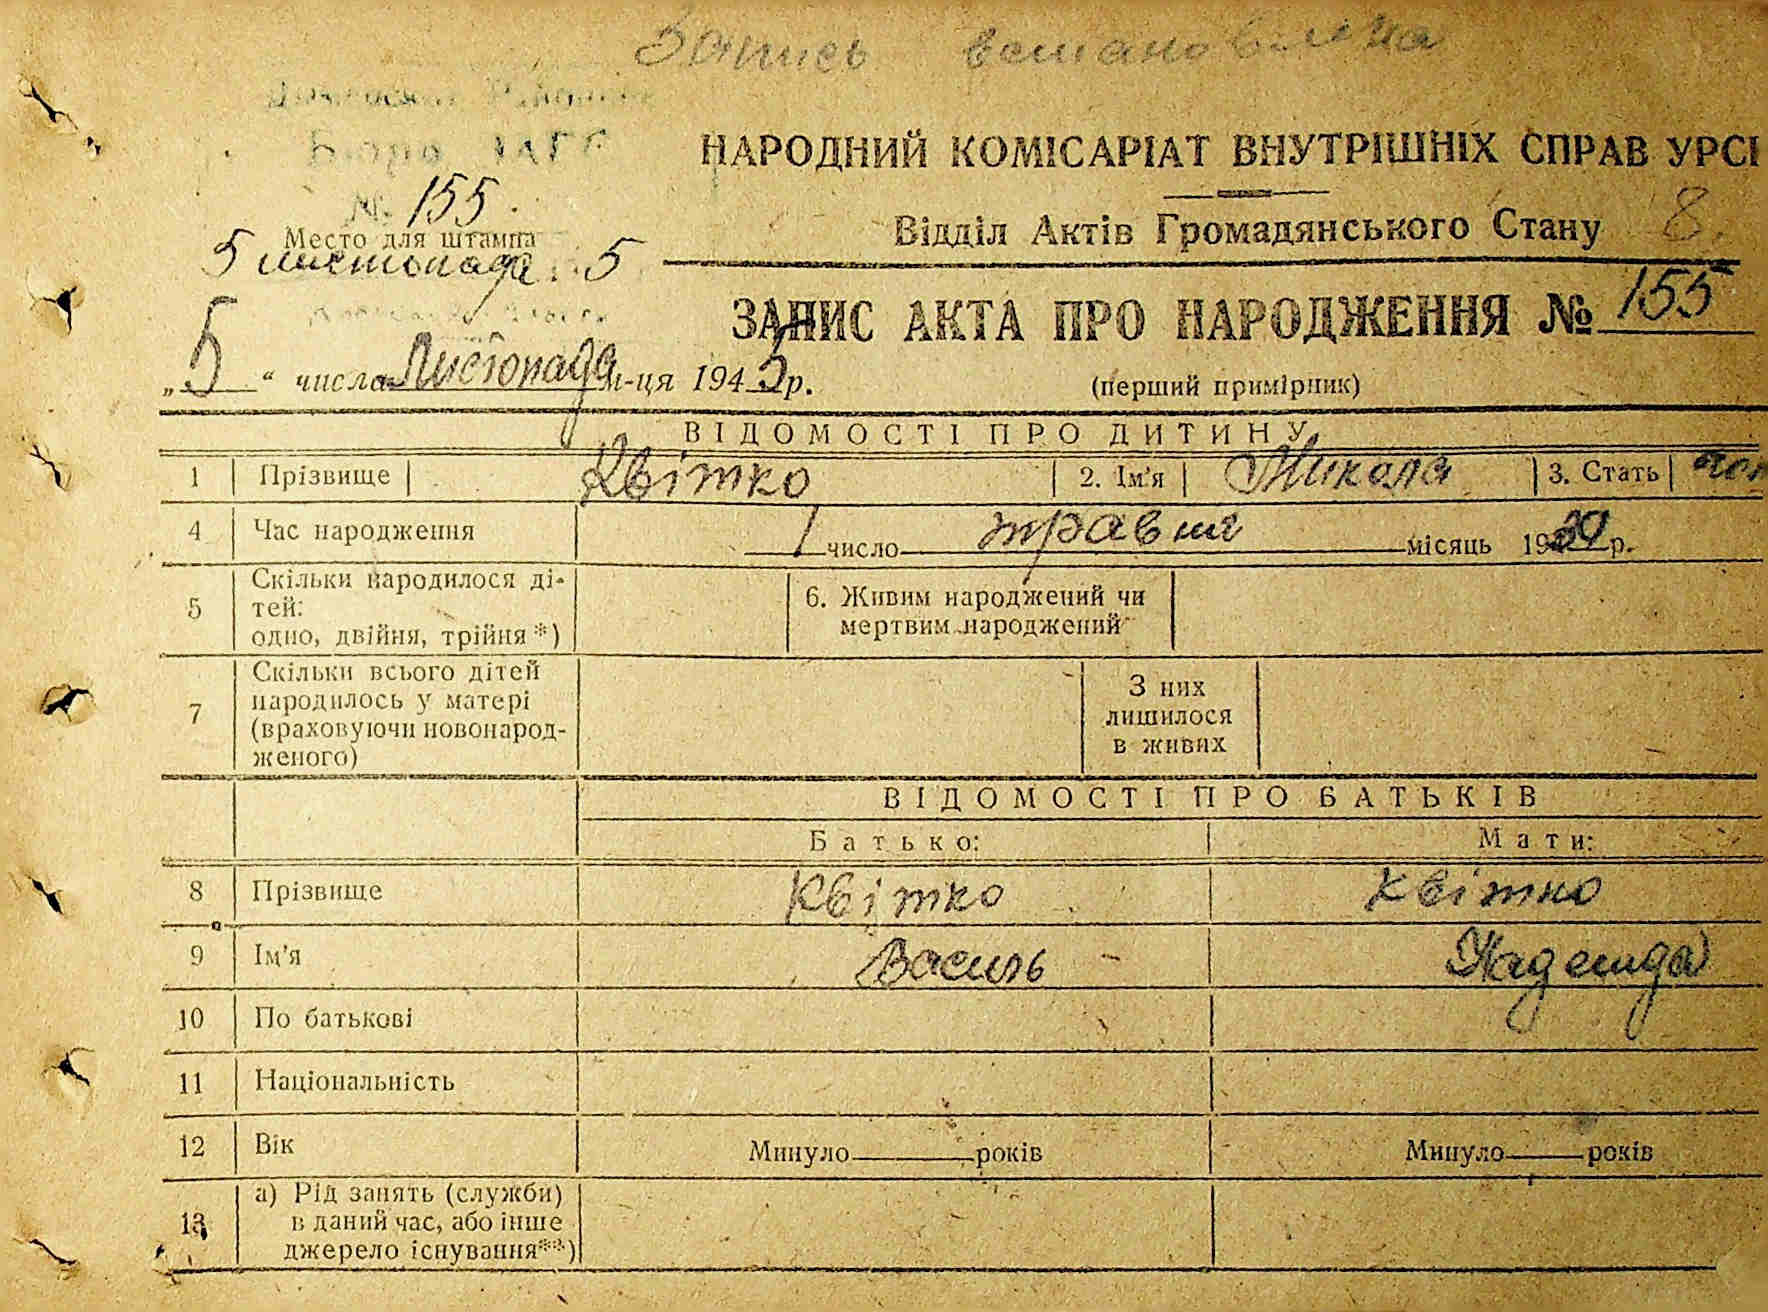 Запись встановлена
Бюро ЗАГС
№ 155
НАРОДНИЙ КОМІСАРІАТ ВНУТРІШНІХ СПРАВ УРСІ
Место для штампа
5 листопада 5
Відділ Актів Громадянського Стану 8
ЗАПИС АКТА ПРО НАРОДЖЕННЯ № 155
„5“ числа Листопада м-ця 1945 р.
(перший примірник)
ВІДОМОСТІ ПРО ДИТИНУ
1 Прізвище Квітко 2. Ім'я Микола 3. Стать чол
4 Час народження 1 число травня місяць 19 р.
5 Скільки народилося ді-
тей:
одно, двійня, трійня*)
6. Живим народжений чи
мертвим народжений
7 Скільки всього дітей
народилось у матері
(враховуючи новонарод-
женого)
З них
лишилося
в живих
ВІДОМОСТІ ПРО БАТЬКІВ
Батько: Мати:
8 Прізвище Квітко Квітко
9 Ім'я Василь Надежда
10 По батькові
11 Національність
12 Вік Минуло років Минуло років
13 а) Рід занять (служби)
в даний час, або інше
джерело існування**)